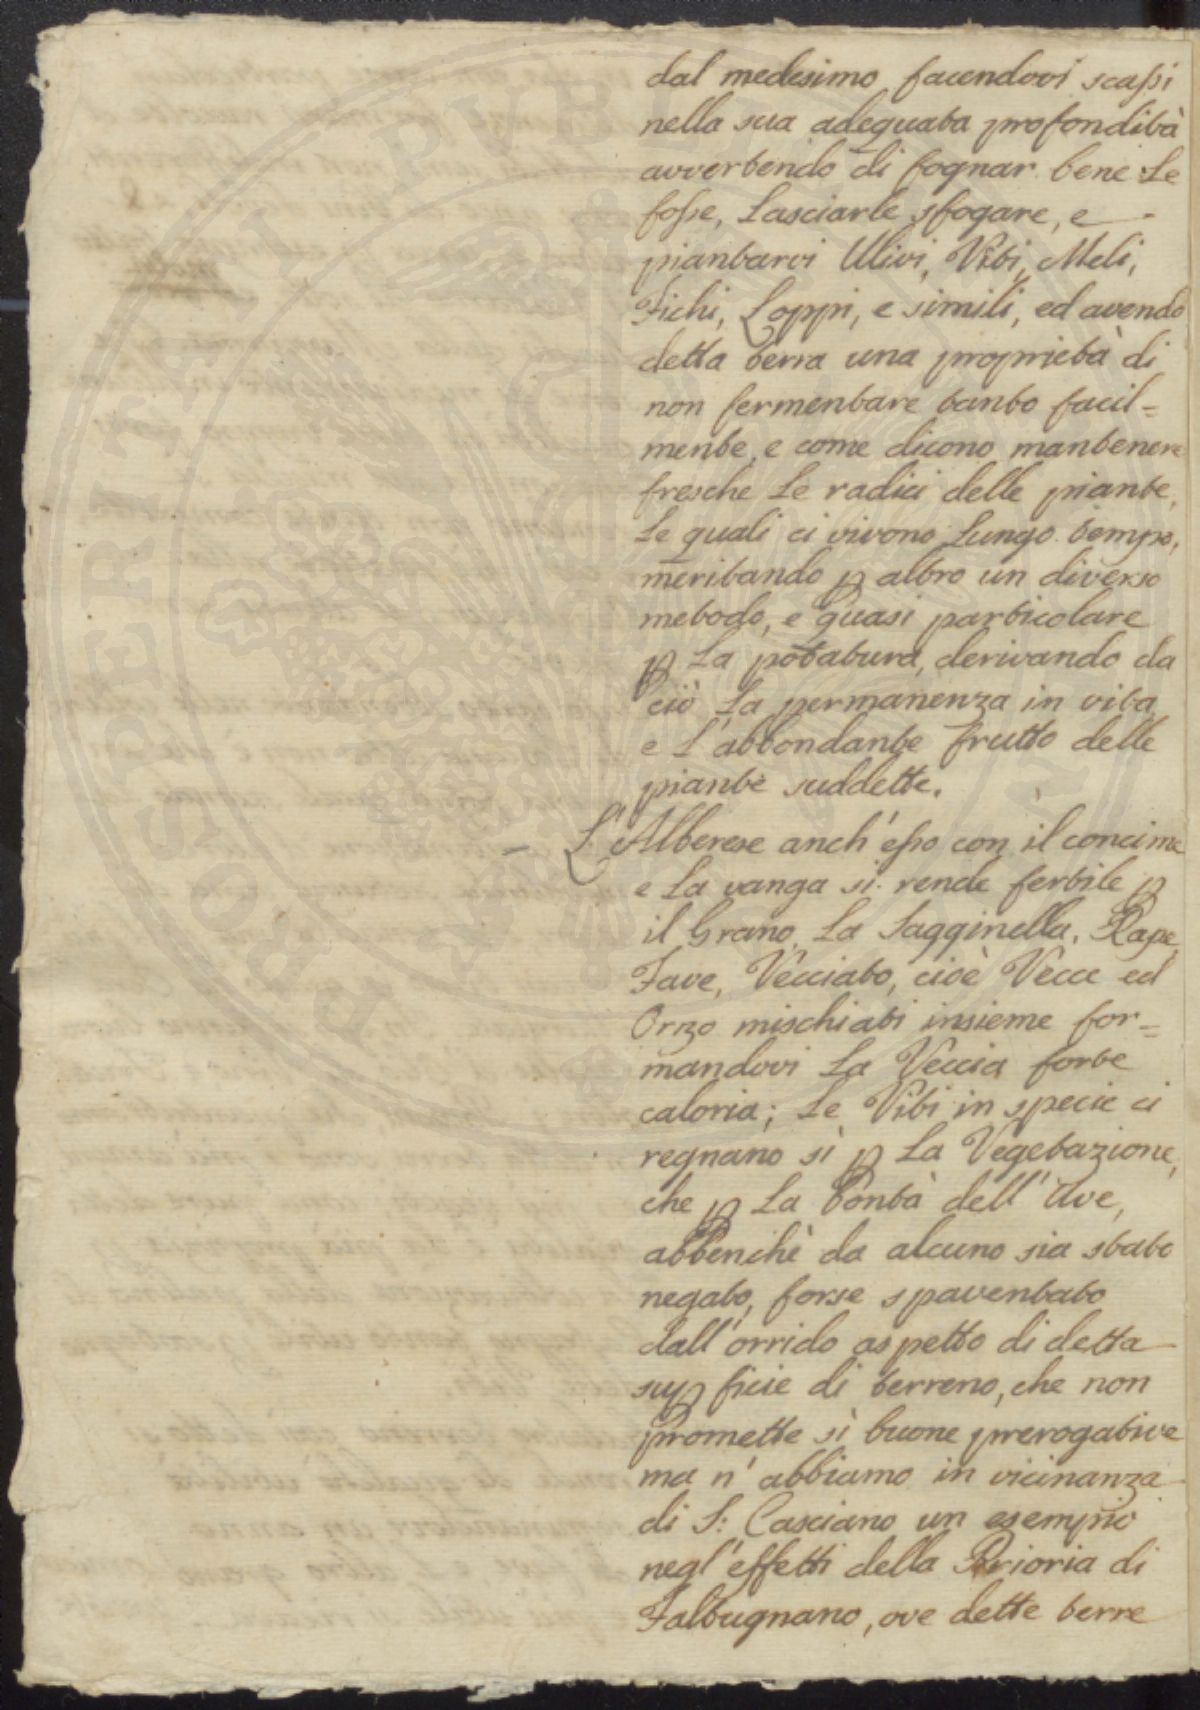 dal medesimo facendovi scaſsi
nella sua adeguata profondità
avvertendo di fognar bene le
foſse, lasciarle sfogare, e
piantarvi Ulivi, Viti, Meli,
Fichi, Loppi, e simili, ed avendo
detta terra una proprietà di
non fermentare tanto facil=
mente, e come dicono mantenere
fresche le radici delle piante,
le quali ci vivono lungo tempo,
meritando p altro un diverso
metodo, e quasi particolare
p la potatura, derivando da
ciò la permanenza in vita,
e l'abbondante frutto delle
piante suddette.
– L'Alberese anch'eſso con il concime
e la vanga si rende fertile p
il Grano, la Sagginella, Rape,
Fave, Vecciato, cioè Vecce ed
Orzo mischiati insieme for=
mandovi la Veccia forte
caloria; le Viti in specie ci
regnano sì p la Vegetazione,
che p la bontà dell'Uve,
abbenchè da alcuno sia stato
negato, forse spaventato
dall'orrido aspetto di detta
supficie di terreno, che non
promette sì buone prerogative
ma n'abbiamo in vicinanza
di S: Casciano un esempio
negl'effetti della Prioria di
Faltugnano, ove dette terre
PROSPERITATI PVBLICAE